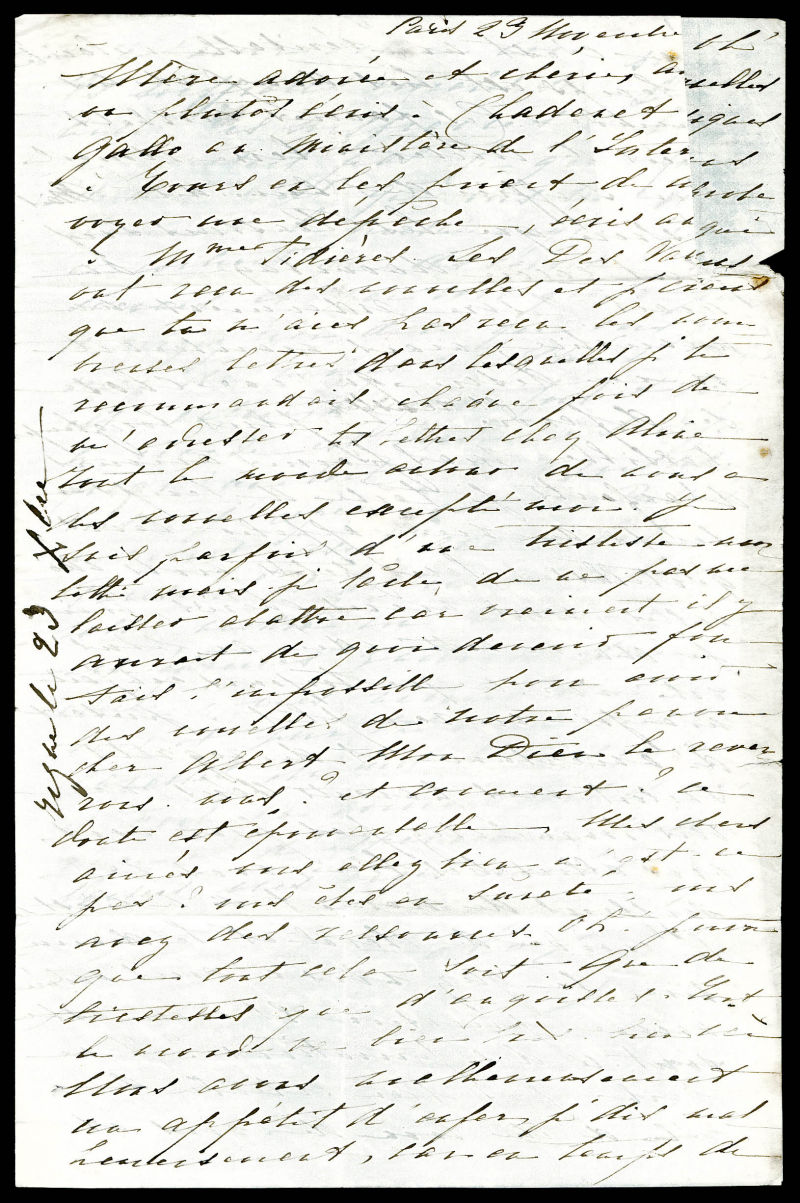 Paris 23 Novembre
Mère adorée et chérie,
ou plutôt écris à Chadenet
Gallo au Ministère de l'Inter
à Tours en les priant de
voyer une dépêche, écris
à Mme Tidières. Les Des
ont reçu des nouvelles et
que tu n'aies pas reçu les nom
breuses lettres dans lesquelles je te
recommandais chaque fois de
m'adresser tes lettres chez Aline
Tout le monde autour de nous a
des nouvelles excepté moi. Je
suis parfois d'une tristesse mor
telle mais je tâche de ne pas me
laisser abattre car vraiment il y
aurait de quoi devenir fou
fais l'impossible pour avoir
des nouvelles de notre pauvre
cher Albert Mon Dieu le rever
rons-nous ? et comment ? ce
doute est épouvantable, Mes chers
aimés vous allez bien n'est-ce
pas ? vous êtes en sureté, vous
avez des ressources. Oh ! pourvu
que tout cela soit. Que de
tristesses que d'angoisses. Tout
le monde va bien
Nous avons malheureusement
un appétit d'enfer, je dis mal
heureusement, car en temps de
le 23